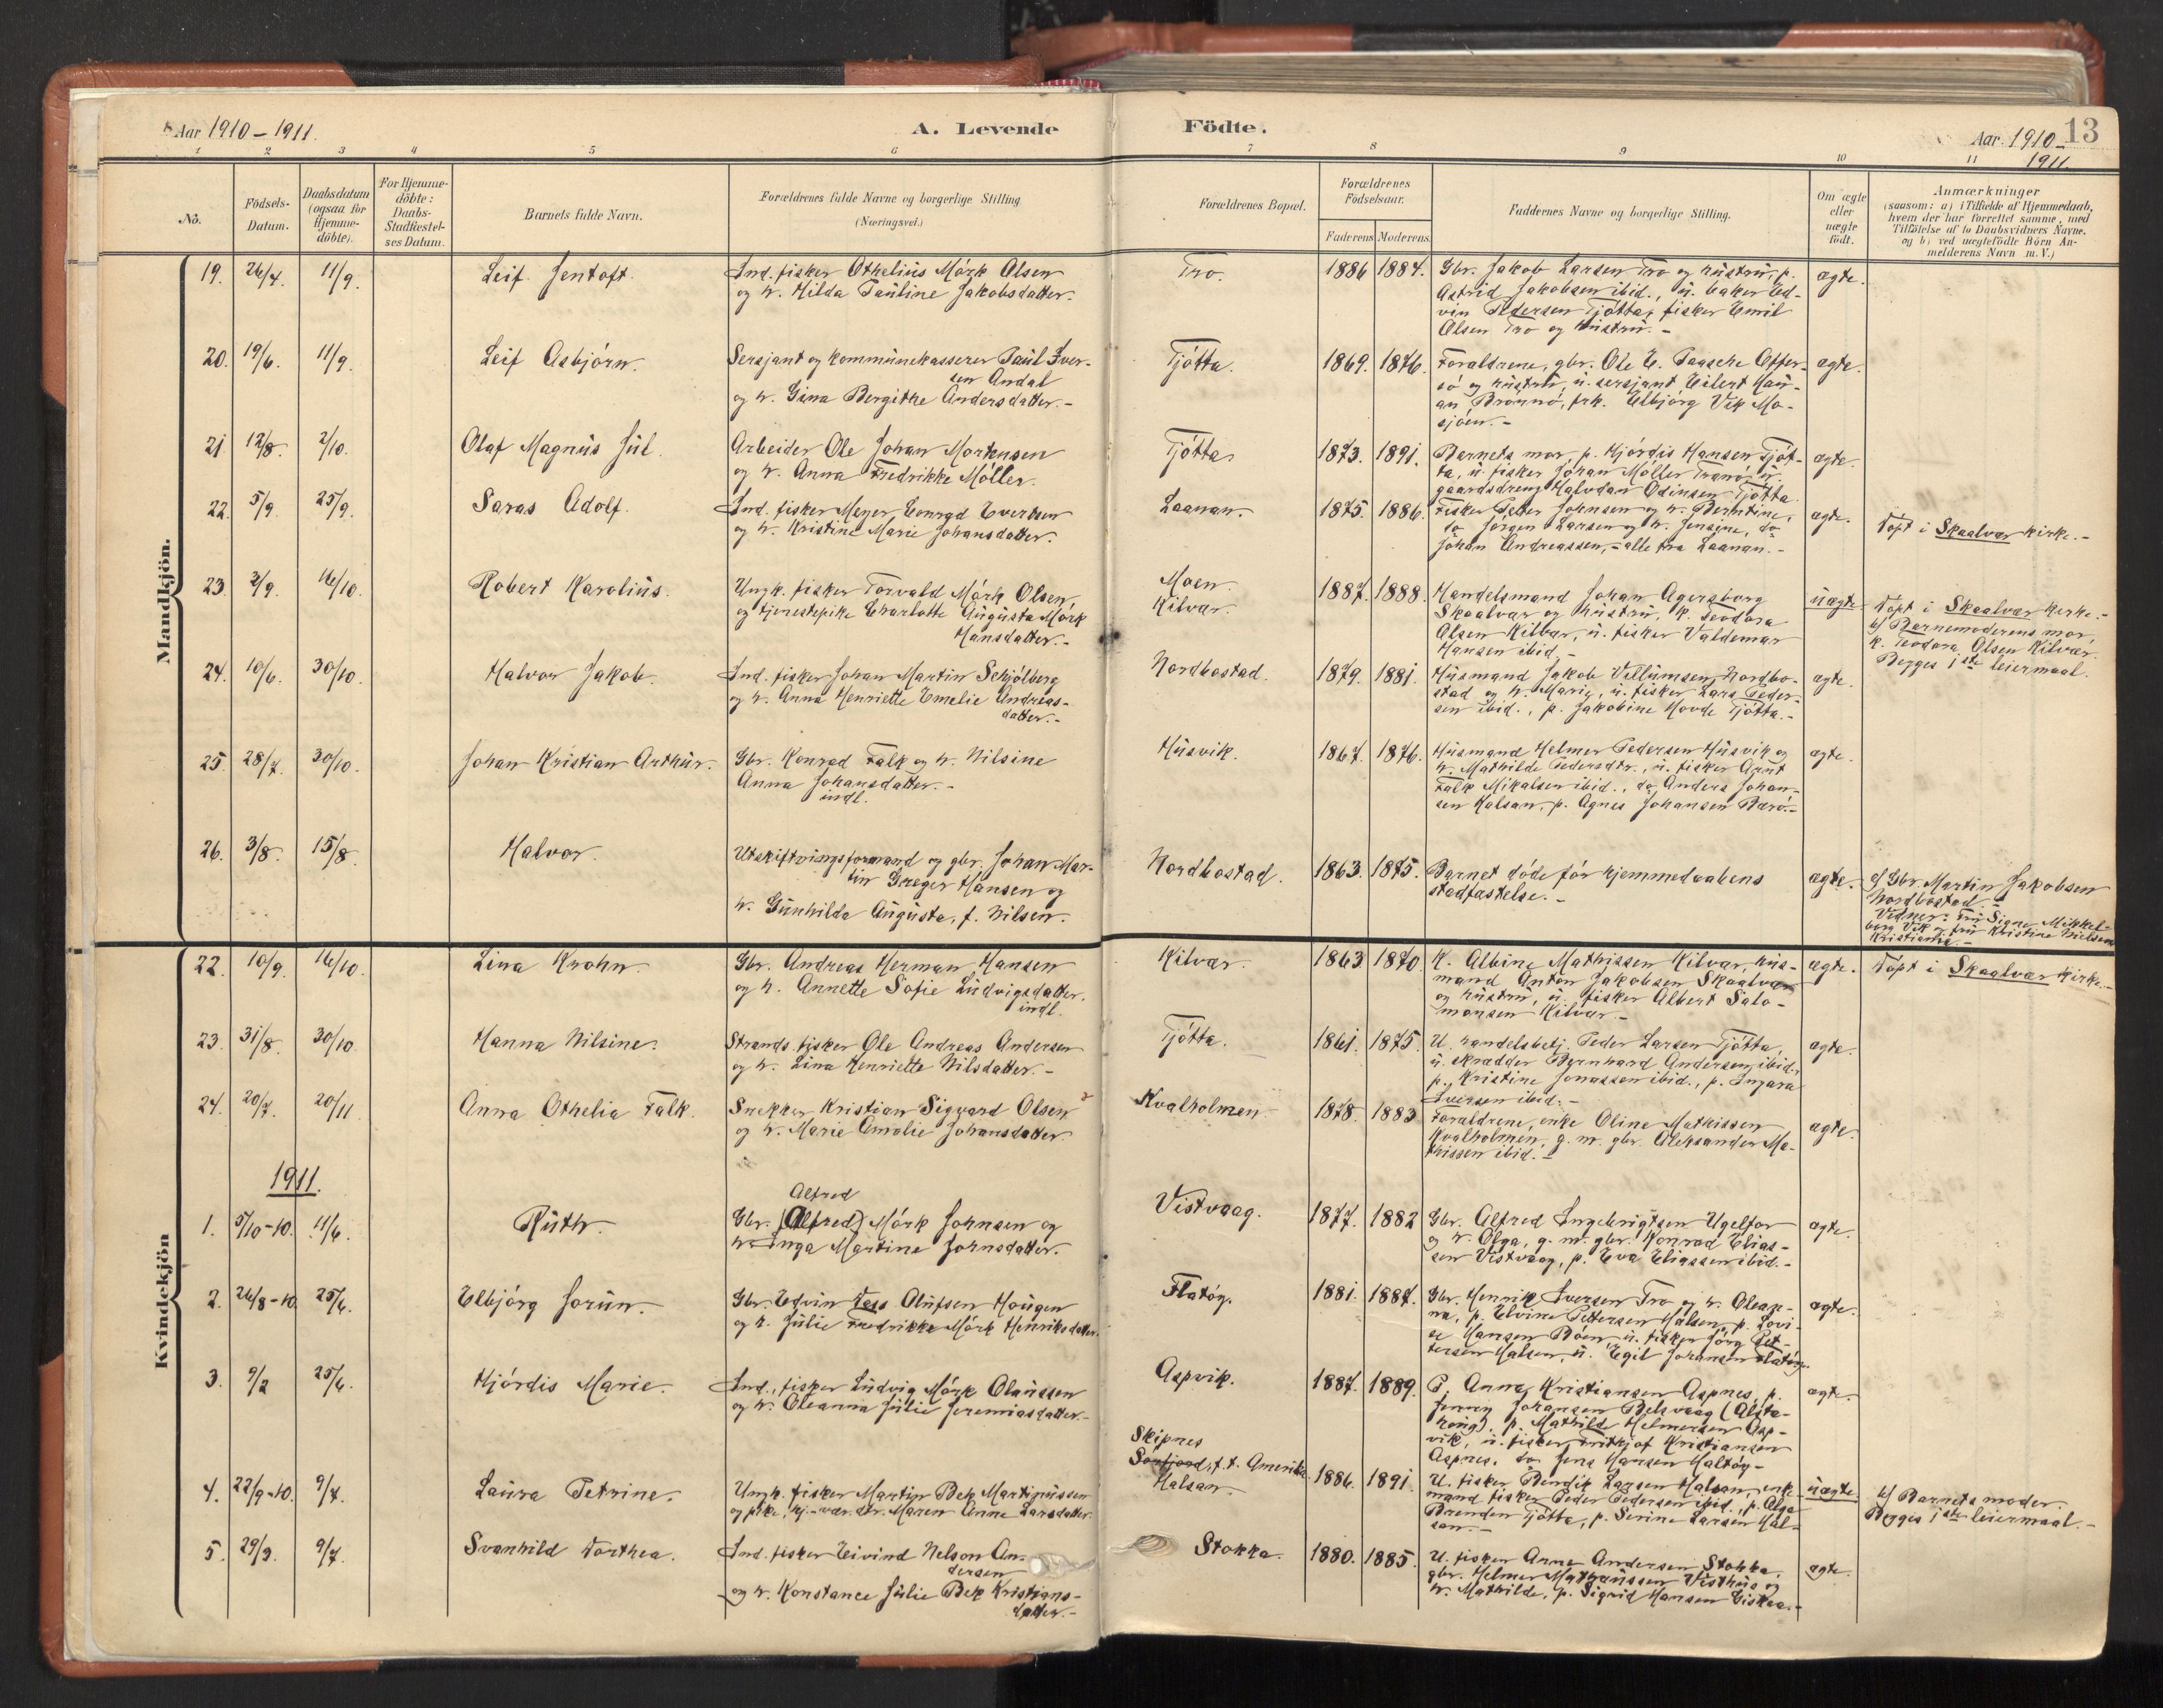 Aar 1910-1911.
A. Levende
Födte.
Aar 1910-
1911.
13
1 2 3 4 5 6 7 8 9 10 11
No.
Födsels-
Datum.
Daabsdatum
(ogsaa for
Hjemme-
döbte).
For Hjemme-
döbte:
Daabs-
Stadfæstel-
ses Datum.
Barnets fulde Navn.
Forældrenes fulde Navne og borgerlige Stilling
(Næringsvei.)
Forældrenes Bopæl.
Forældrenes
Födselsaar.
Faderens Moderens
Faddernes Navne og borgerlige Stilling.
Om ægte
eller
uægte
födt.
Anmærkninger
(saasom: a) i Tilfælde af Hjemmedaab,
hvem der har forrettet samme, med
Tilföielse af to Daabsvidners Navne.
og b) ved uægtefödte Börn An-
melderens Navn m.V.)
Mandkjön.
19. 26/7. 11/9. Leif Jentoft.
Ind. fisker Othelius Mörk Olsen
og h. Hilda Pauline Jakobsdatter.
Tro. 1886 1887.
Gbr. Jakob Larsen Tro og hustru, p.
Astrid Jakobsen ibid., u. baker Ed-
vin Pedersen Tjötta, fisker Emil
Olsen Tro og hustru.-
ægte.
20. 19/6. 11/9. Leif Asbjörn.
Sersjant og kommunekasserer Paul Iver-
sen Andal
og h. Gina Bergithe Andersdatter.-
Tjötta. 1869. 1876.
Forældrene, gbr. Ole E. Paasche Offer-
sö og hustru, u. sersjant Eilert Hau-
an Brönnö, frk. Elbjörg Vik Mo-
sjöen.-
ægte.
21. 12/8. 2/10. Olaf Magnus Jul.
Arbeider Ole Johan Mortensen
og h. Anna Fredrikke Möller.
Tjötta. 1873. 1891.
Barnets mor, p. Hjördis Hansen Tjöt-
ta, u. fisker Johan Möller Tranö, u.
gaardsdreng Halvdan Odinsen Tjötta.
ægte.
22. 5/9. 25/9. Saras Adolf.
Ind. fisker Meyer Conrad Evertsen
og h. Kristine Marie Johansdatter.
Laanan. 1875. 1886.
Fisker Peter Johnsen og h. Berntine,
do Jörgen Larsen og h. Jensine, do
Johan Andreassen,- alle fra Laanan.-
ægte.
Döpt i Skaalvær kirke.-
23. 2/9. 16/10. Robert Karolius.
Ungk. fisker Torvald Mörk Olsen
og tjenestepike Charlotte Augusta Mörk
Hansdatter.-
Moen.
Kilvær.
1887. 1888.
Handelsmand Johan Agersborg
Skaalvær og hustru, k. Teodora
Olsen Kilvær, u. fisker Valdemar
Hansen ibid.-
uægte
Döpt i Skaalvær kirke.-
b) Barnemoderens mor,
k. Teodora Olsen Kilvær.
Begges 1ste leiermaal.
24. 10/6. 30/10. Halvor Jakob.
Ind. fisker Johan Martin Schjölberg
og h. Anna Henriette Emelie Andreas-
datter.-
Nordbostad. 1879. 1881.
Husmand Jakob Villumsen Nordbo-
stad og h. Marie, u. fisker Lars Peder-
sen ibid., p. Jakobine Hovde Tjötta.-
ægte.
25. 28/7. 30/10. Johan Kristian Arthur.
Gbr. Konrad Falk og h. Nilsine
Anna Johansdatter.-
indl.
Husvik. 1867. 1876.
Husmand Helmer Pedersen Husvik og
h. Mathilde Pedersdtr., u. fisker Arnt
Falk Mikalsen ibid., do Anders Johan-
sen Kalsan, p. Agnes Johansen Bærö.-
ægte.
26. 3/8. 15/8. Halvor.
Utskiftningsformand og gbr. Johan Mar-
tin Greger Hansen og
h. Gunhilda Augusta, f. Nilsen.
Nordbostad. 1863. 1875.
Barnet döde för hjemmedaabens
stadfæstelse.-
ægte.
a) Gbr. Martin Jakobsen
Nordbostad.-
Vidner: Fru Signe Mikkel-
borg Vik og fru Kristine Nielsen
Kristiania.-
Kvindekjön
22. 10/9. 16/10. Lina Krohn.
Gbr. Andreas Herman Hansen
og h. Annette Sofie Ludvigsdatter.
indl.
Kilvær. 1863 1870
K. Albine Mathissen Kilvær, hus-
mand Anton Jakobsen Skaalvær
og hustru, u. fisker Albert Salo-
monsen Kilvær.-
ægte.
Döpt i Skaalvær kirke.-
23. 31/8. 30/10. Hanna Nilsine.
Strands. fisker Ole Andreas Andersen
og h. Lina Henriette Nilsdatter.-
Tjötta. 1861. 1875.
U. handelsbetj. Peder Larsen Tjötta,
u. skrædder Bernhard Andersen ibid.,
p. Kristine Jonassen ibid., p. Ingara
Iversen ibid.-
ægte.
24. 20/7. 20/11. Anna Othelia Falk.
Snekker Kristian Sigvard Olsen
og h. Marie Amalie Johansdatter
Kvalholmen. 1878. 1883
Forældrene, enke Oline Mathissen
Kvalholmen, g.m. gbr. Aleksander Ma-
thissen ibid.-
ægte.
1911.
1. 5/10-10. 11/6. Ruth.
Alfred
Gbr. (Alfred) Mörk Johnsen og
h. Inga Martine Jornsdatter.
Vistvaag. 1877. 1882
Gbr. Alfred Ingebrigtsen Ugelfor
og h. Olga, g.m. gbr. Konrad Elias-
sen Vistvaag, p. Eva Eliassen ibid.-
ægte.
2. 26/8-10. 25/6. Elbjörg Jorun.
Gbr. Edvin Olufsen Hougen
og h. Julie Fredrikke Mörk Henriksdatter.
Flatöy. 1881. 1887.
Gbr. Henrik Iversen Tro og h. Olean-
na, p. Elvine Pettersen Halsen, p. Lovi-
se Hansen Böen, u. fisker Jörg. Pet-
tersen Halsen, u. Egil Johansen Flatöy.
ægte.
3. 9/2 25/6. Hjördis Marie.
Ind., fisker Ludvig Mörk Olaussen
og h. Oleanna Julie Jeremiasdatter.-
Aspvik. 1887. 1889.
P. Anna Kristiansen Aspnes, p.
Jenny Johansen Belsvaag (Alsta-
houg), p. Mathilde Helmersen Asp-
vik, u. fisker Fritkjof Kristiansen
Aspnes, do Jens Hansen Haltöy-
ægte.
4. 22/9-10. 9/7. Laura Petrine.
Ungk. fisker Martin Bek Martinussen
og pike, hj.-vær. dtr. Maren Anne Larsdatter.
Skipnes
Sörfjord, f.t. Amerika
Halsan.
1886. 1891.
U. fisker Bendik Larsen Halsan, enke-
mand fisker Peder Pedersen ibid., p. Olga
Brenden Tjötta, p. Serine Larsen Hal-
san.-
uægte
b) Barnets moder.
Begges 1ste leiermaal.-
5. 29/3. 9/7. Svanhild Dorthea.
Ind. fisker Eivind Nelson An-
dersen
og h. Konstance Julie Bek Kristians-
datter.-
Stokka. 1880. 1885.
U. fisker Arne Andersen Stokka,
gbr. Helmer Mathæussen Visthus og
h. Mathilde, p. Sigrid Hansen Eiskaa.-
ægte.